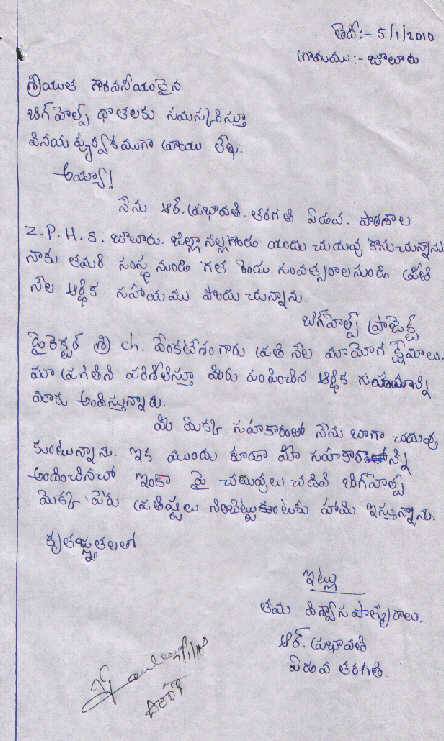 తేది:- 5/1/2010
గ్రామము:- జూలూరు
శ్రీయుత గౌరవనీయులైన
బిగ్ హెల్ప్ దాతలకు నమస్కరిస్తూ
వినయ పూర్వకముగా వ్రాయు లేఖ.
అయ్యా!
నేను ఆర్. ప్రభావతి. తరగతి ఏడవ. పాఠశాల
Z.P.H.S. జూలూరు. జిల్లా నల్లగొండ యందు చదువు కొనుచున్నాను
నాకు తమరి సంస్థ నుండి గత రెండు సంవత్సరాలనుండి ప్రతి
నెల ఆర్థిక సహాయము పొందు చున్నాను.
బిగ్ హెల్ప్ ప్రాజెక్ట్
డైరెక్టర్ శ్రీ ch. వెంకటేశంగారు ప్రతి నెల మా యోగ క్షేమాలు.
మా ప్రగతిని పరిశీలిస్తూ మీరు పంపించిన ఆర్థిక సహాయాన్ని
మాకు అందిస్తున్నారు.
మీ యొక్క సహకారంతో నేను బాగా చదువు
కుంటున్నాను. ఇక ముందు కూడా మీ సహకారాన్ని
అందించినచో ఇంకా పై చదువులు చదివి బిగ్ హెల్ప్
యొక్క పేరు ప్రతిష్టలు నిలబెట్టుకుంటానని హామి ఇస్తున్నాను.
కృతజ్ఞతలతో
ఇట్లు
తమ విశ్వాసపాత్రురాలు.
ఆర్. ప్రభావతి
ఏడవ తరగతి